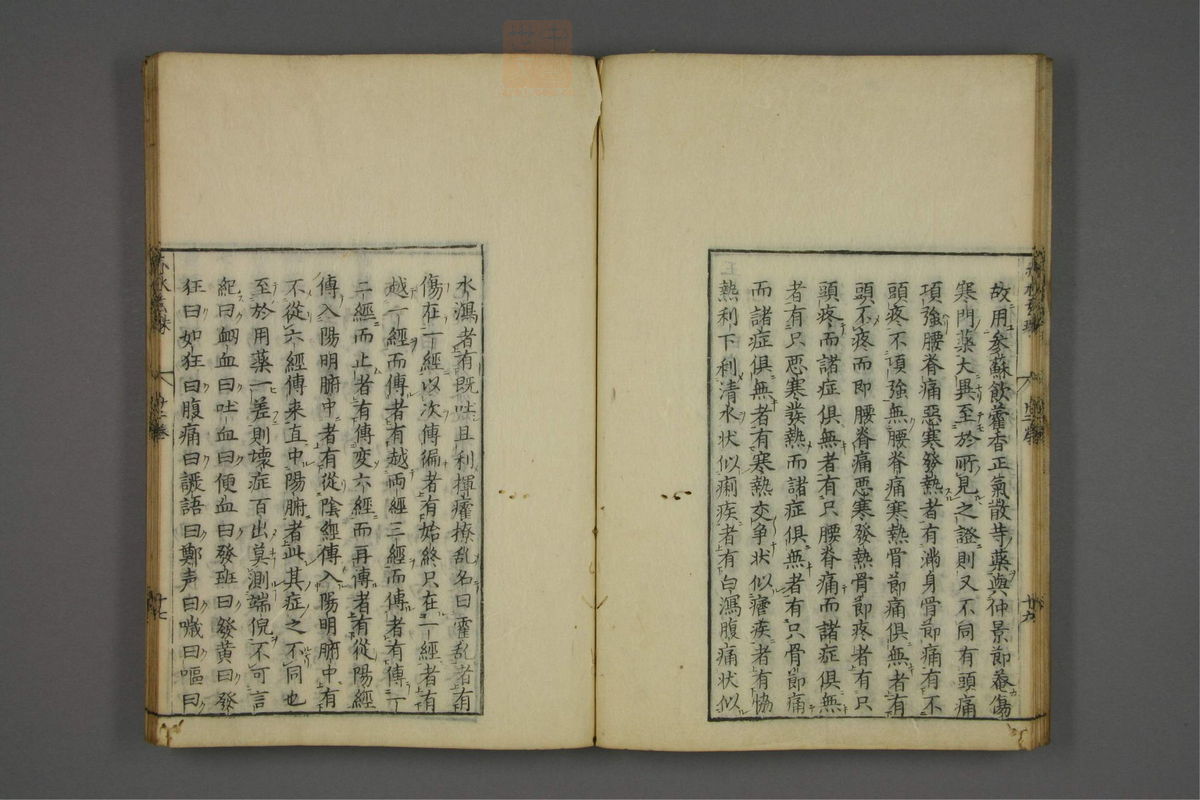 故用參蘇飲藿香正氣散等藥與仲景節菴傷
寒門藥大異至於所見之證則又不同有頭痛
項強腰脊痛惡寒發熱者有滿身骨節痛有不
頭疼不項強無腰脊痛寒熱骨節痛俱無者有
頭不疼而即腰脊痛惡寒發熱骨節疼者有只
頭疼而諸症俱無者有只腰脊痛而諸症俱無
者有只惡寒發熱而諸症俱無者有只骨節痛
而諸症俱無者有寒熱交争状似瘧疾者有恊
熱利下利清水状似痢疾者有白瀉腹痛状似
廿六
水瀉者有既吐且利揮癨撩乱名曰霍乱者有
傷在一經以次傳徧者有始終只在一經者有
越一經而傳者有越兩經三經而傳者有傳一
二經而止者有傳変六經而再傳者有從陽經
傳入陽明腑中者有從陰經傳入陽明腑中有
不從六經傳来直中陽腑者此其症之不同也
至於用藥一差則壊症百出莫測端倪不可言
紀曰衂血曰吐血曰便血曰發班曰發黄曰發
狂曰如狂曰腹痛曰譫語曰鄭声曰噦曰嘔曰
廿七